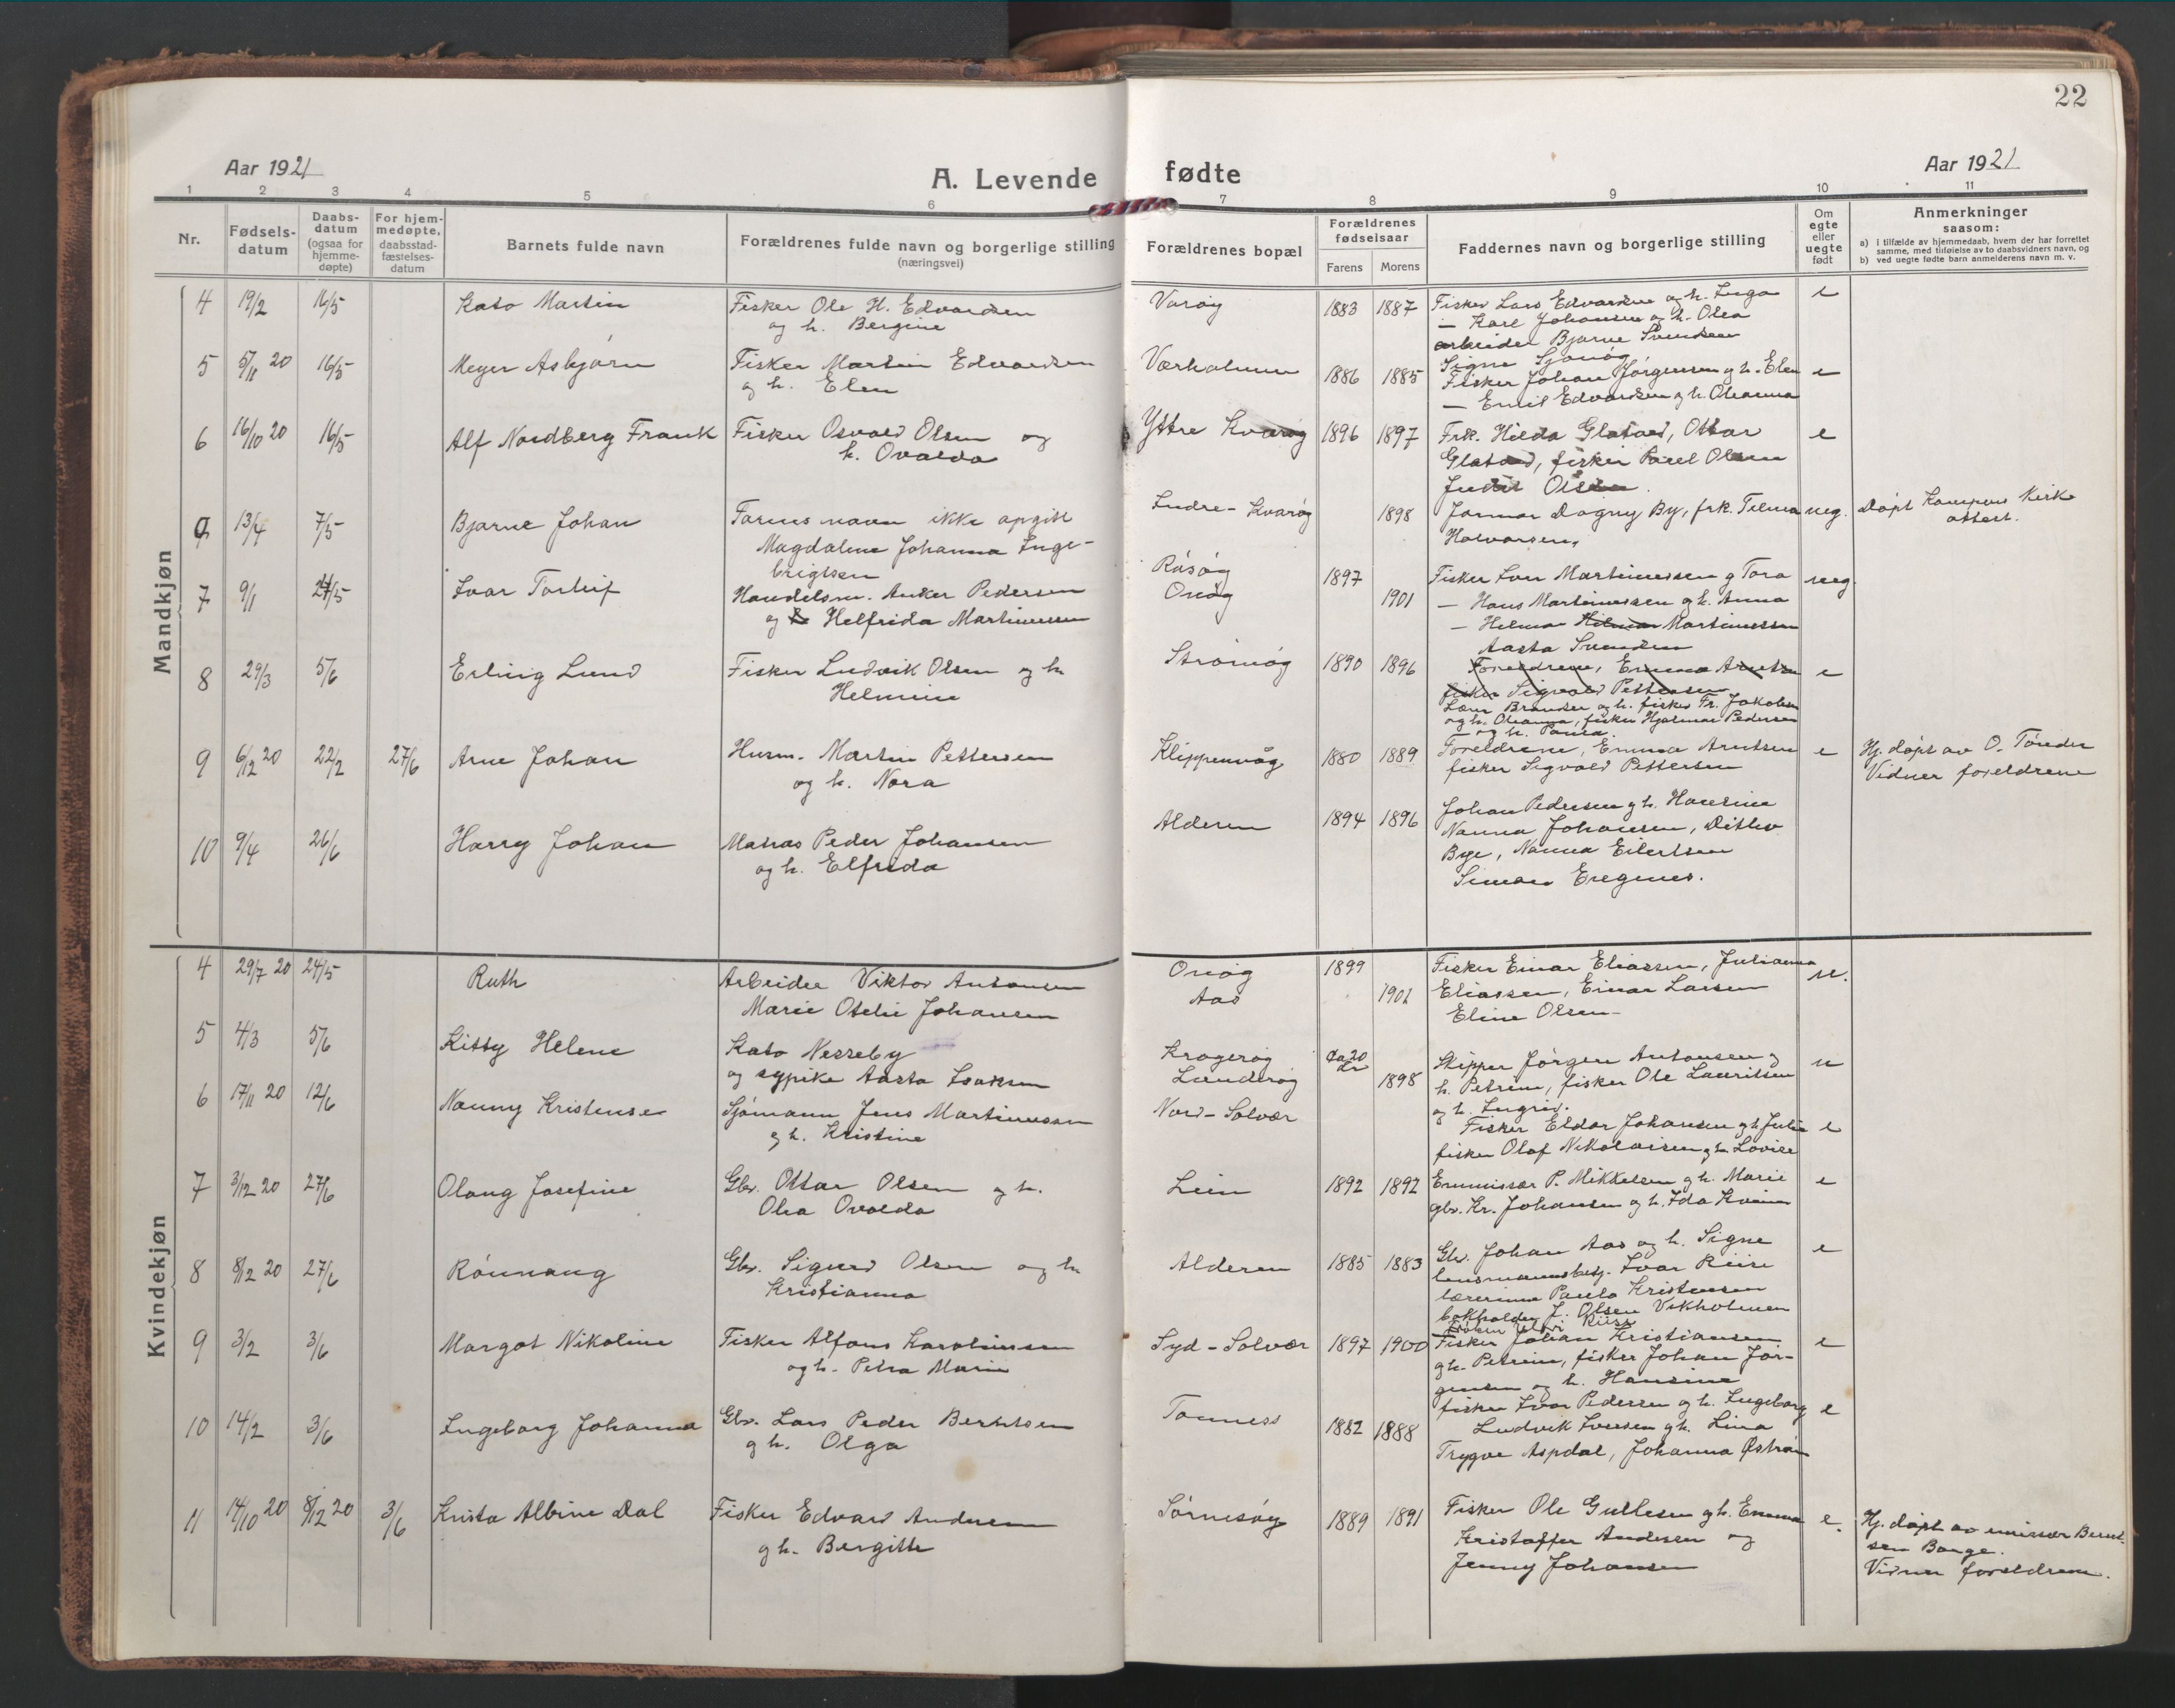 22
Aar 1921
A. Levende fødte
Aar 1921
1 2 3 4 5 6 7 8 9 10 11
Nr.
Fødsels-
datum
Daabs-
datum
(ogsaa for
hjemme-
døpte)
For hjem-
medøpte,
daabsstad-
fæstelses-
datum
Barnets fulde navn
Forældrenes fulde navn og borgerlige stilling
(næringsvei)
Forældrenes bopæl
Forældrenes
fødselsaar
Farens Morens
Faddernes navn og borgerlige stilling
Om
egte
eller
uegte
født
Anmerkninger
saasom:
a) i tilfælde av hjemmedaab, hvem der har forrettet
samme, med tilføielse av to daabsvidners navn, og
b) ved uegte fødte barn anmelderens navn m. v.
Mandkjøn
4 19/2 16/5 Kato Martin Fisker Ole H. Edvardsen
og h. Bergine
Varøy 1883 1887 Fisker Lars Edvardsen og h. Inga e
— Karl Johansen og h. Olea
arbeider Bjarne Svendsen
Signe Sjonøy
5 5/11 20 16/5 Meyer Asbjørn Fisker Martin Edvardsen
og h. Elen
Værholmen 1886 1885 Fisker Johan Jørgensen og h. Elen e
— Emil Edvardsen og h. Oleanna
6 16/10 20 16/5 Alf Nordberg Frank Fisker Osvald Olsen og
h. Ovalda
Yttre Kvarøy 1896 1897 Frk. Hilda Glatved, Ottar e
Glatved, fisker Parel Olsen
Judit Olsen.
13/4 7/5 Bjarne Johan Farens navn ikke opgitt
Magdalena Johanna Inge-
brigtsen
Indre-Kvarøy 1898 Jarmar Dagny By, frk. Tilma ueg.
Halvorsen,
Døpt Kampens Kirke
attest.
7 9/1 24/5 Ivar Torleif Handelsm. Anker Pedersen
og Helfrida Martinussen
Råsøy 1897
Onøy 1901
Fisker Iver Martinussen og Tora ueg.
— Hans Martinussen og h. Anna
— Helmar Martinussen
Aasta Svendsen
8 29/3 5/6 Erling Lund Fisker Ludvik Olsen og h
Helmine
Strømøy 1890 1896 Foreldrene, Emma Arntsen e
fisker Sigvald Pettersen
Lærer Brandser og h. fisker Fr. Jakobsen
og h. Oleanna, fisker Hjalmar Pedersen
og h. Paula.
9 6/12 20 22/2 27/6 Arne Johan Husm. Martin Pettersen
og h. Nora
Klippenvåg 1880 1889 Foreldrene, Emma Arntsen e
fisker Sigvald Pettersen
Hj. døpt av O. Tönder
Vidner foreldrene
10 9/4 26/6 Harry Johan Matros Peder Johansen
og h. Elfrida
Alderen 1894 1896 Johan Pedersen og h. Hansine
Nanna Johansen, Ditlev
Bye, Nanna Eilertsen
Simon
Kvindekjøn
4 29/7 20 24/5 Ruth Arbeider Viktor Antonsen
Marie Otelie Johansen
Onøy 1899
Aas 1901
Fisker Einar Eliassen, Julianna u.
Eliassen, Einar Larsen
Eline Olsen
5 4/3 5/6 Kitty Helene Kato Nesseby
og sypike Aasta Isaksen
Krogerøy ca 20 år
Lænderøy 1898
Skipper Jørgen Antonsen og u
h. Petrine, fisker Ole Lauritsen
og h. Ingrid.
6 17/11 20 12/6 Nanny Kristense Sjømann Jens Martinussen
og h. Kristine
Nord-Solvær
Fisker Eldor Johansen og h Julie e
fisker Olaf Nikolaisen og h Lovise
7 3/12 20 27/6 Olaug Josefine Gbr. Ottar Olsen og h.
Olea Ovalda
Lein 1892 1892 Emmissær P. Mikkelsen og h. Marie e
gbr. Kr. Johansen og h. Ida Kvina
8 8/12 20 27/6 Rønnaug Gbr. Sigurd Olsen og h
Kristianna
Alderen 1885 1883 Gbr. Johan Aas og h. Signe e
lensmannsbetj. Ivar Riise
lærerinne Paula Kristensen
bokholder J. Olsen Vikholmen
frøken Riise
9 3/2 3/6 Margot Nikoline Fisker Alfons Karolinssen
og h. Petra Marie
Syd-Solvær 1897 1900 Fisker Johan Kristiansen e
og h. Petrine, fisker Johan Jør-
gensen og h. Hansine
10 14/2 3/6 Ingeborg Johanna Gbr. Lars Peder Berntsen
og h. Olga
Tonness 1882 1888 fisker Ivar Pedersen og h. Ingeborg e
Ludvik Iversen og h. Lina
Trygve Aspdal, Johanna Østrøm
11 14/10 20 8/12 20 3/6 Krista Albine Dal Fisker Edvard Andersen
og h. Bergitte
Sørnesøy 1889 1891 Fisker Ole Gullesen og h. Emma e.
Kristoffer Andersen og
Jenny Johansen
Hj. døpt av emissær Bernt-
sen Bange.
Vidner foreldrene.